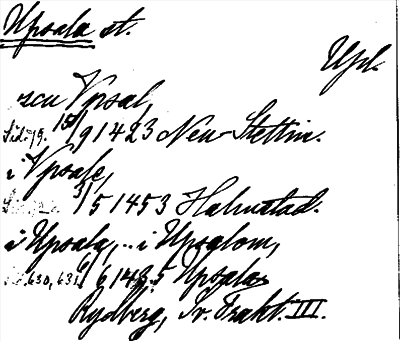 Upsala st.
Upl.
zcu Vpsal,
Sid. 79. 15/9 1423 Neu-Stettin.
i Vpsale,
3/5 1453 Halmstad.
i Upsala, .. i Upsalom,
630, 631. 6/6 1485 Upsala
Rydberg, Sv. Trakt. III.